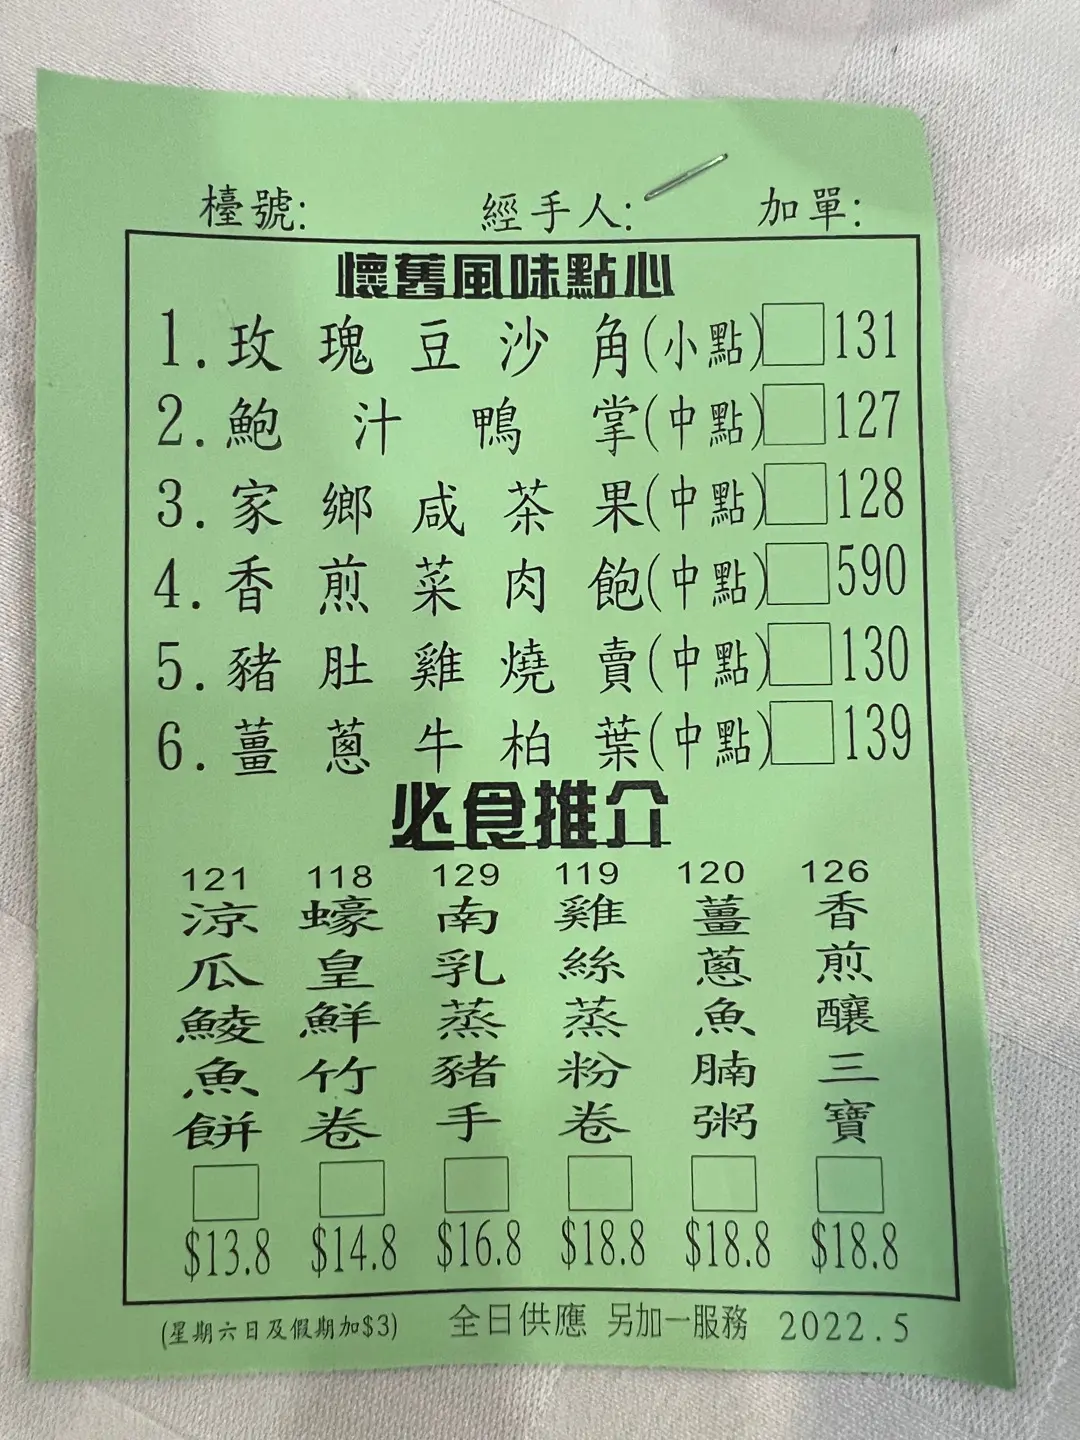 檯號: 經手人: 加單:
懷舊風味點心
1.玫瑰豆沙角(小點) 131
2.鮑汁鴨掌(中點) 127
3.家鄉咸茶果(中點) 128
4.香煎菜肉飽(中點) 590
5.豬肚雞燒賣(中點) 130
6.薑蔥牛柏葉(中點) 139
必食推介
121 涼瓜鯪魚餅 $13.8
118 蠔皇鮮竹卷 $14.8
129 南乳蒸豬手 $16.8
119 雞絲蒸粉卷 $18.8
120 薑蔥魚腩粥 $18.8
126 香煎釀三寶 $18.8
(星期六日及假期加$3) 全日供應 另加一服務 2022.5